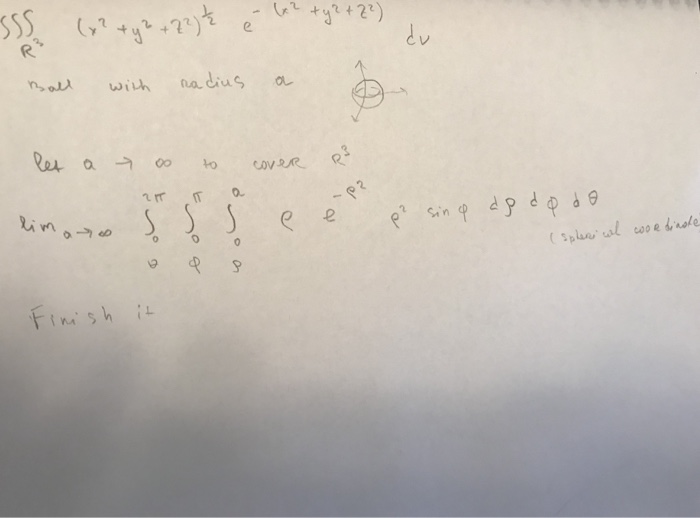 ∭_{R³} (x² + y² + z²)^{1/2} e^{-(x² + y² + z²)} dv
Ball with radius a
let a → ∞ to cover R³
lim_{a→∞} ∫₀^{2π} ∫₀^{π} ∫₀^{a} ρ e^{-ρ²} ρ² sin φ dρ dφ dθ
θ φ ρ
(spherical coordinate
Finish it